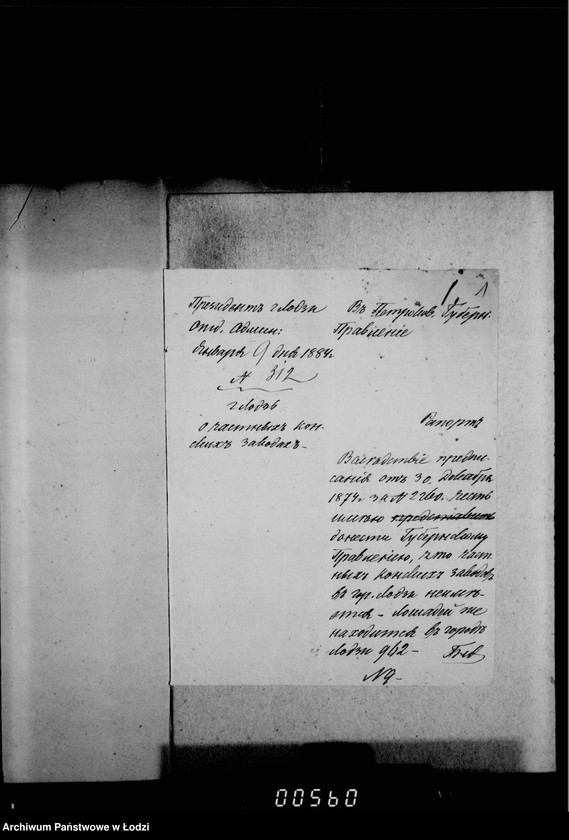 1
Президентъ г. Лодзи
Отд. Админ:
Января 9 дня 1884 г.
N 312
г. Лодзь
о частныхъ кон-
скихъ заводахъ.-
Въ Петроков. Губерн.
Правленіе
Рапортъ
Вслѣдствіе предпи-
санія отъ 30. Декабря
187 г. за N 2260. честь
имѣю представить
донести Губернскому
Правленію, что част-
ныхъ конскихъ заводовъ
въ гор. Лодзи неимѣ-
ется - Лошадей же
находится въ городѣ
Лодзи 962 -
00560
Archiwum Państwowe w Łodzi